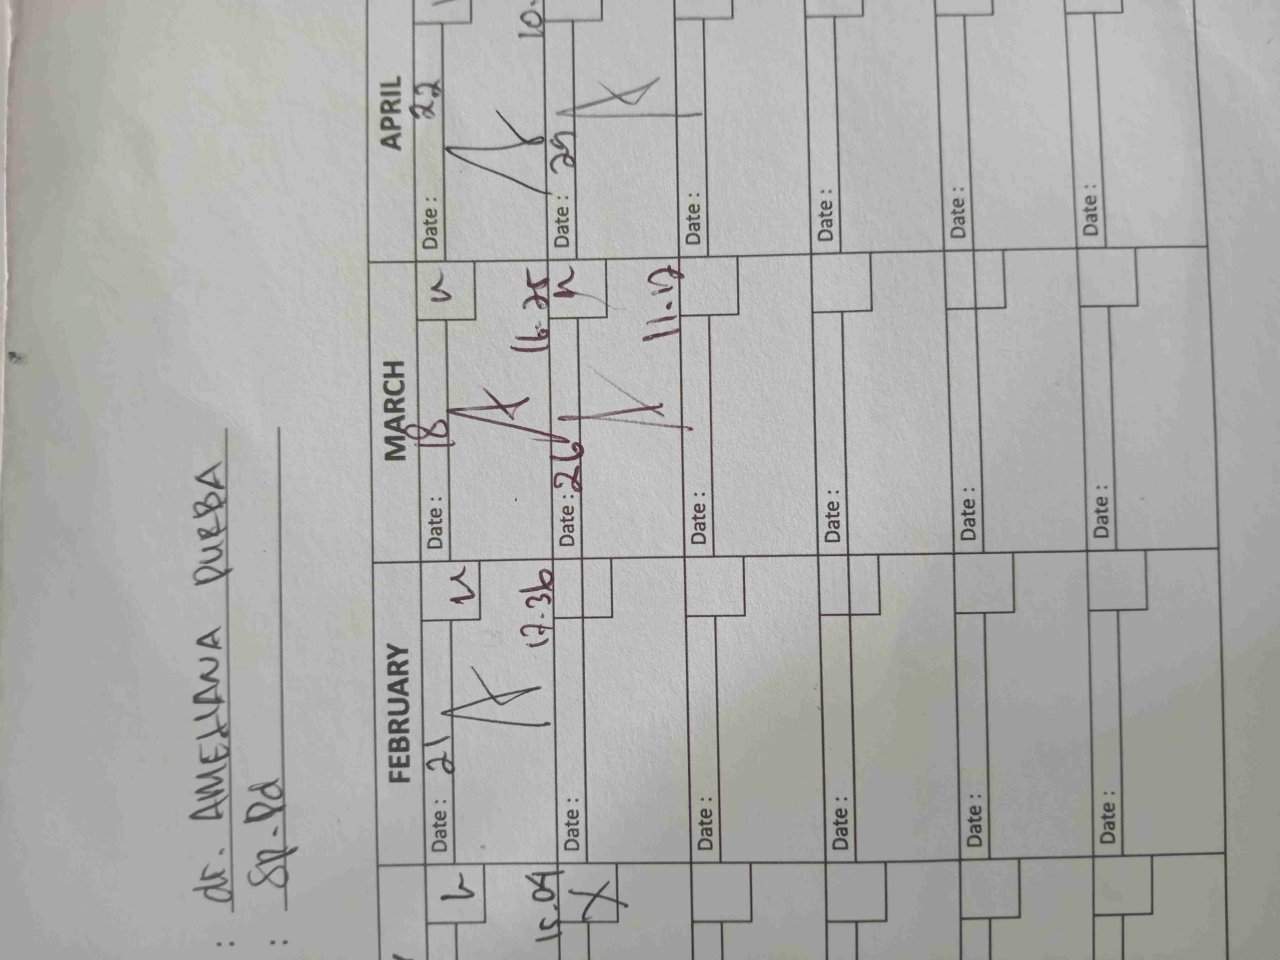 : dr. AMELIANA PURBA
: Sp.Pd
FEBRUARY MARCH APRIL
Date : 21 Date : 18 Date : 22
15.04 17.36 16.25 10.
X Date : Date : 26 Date : 29
11.17
Date : Date : Date :
Date : Date : Date :
Date : Date : Date :
Date : Date : Date :